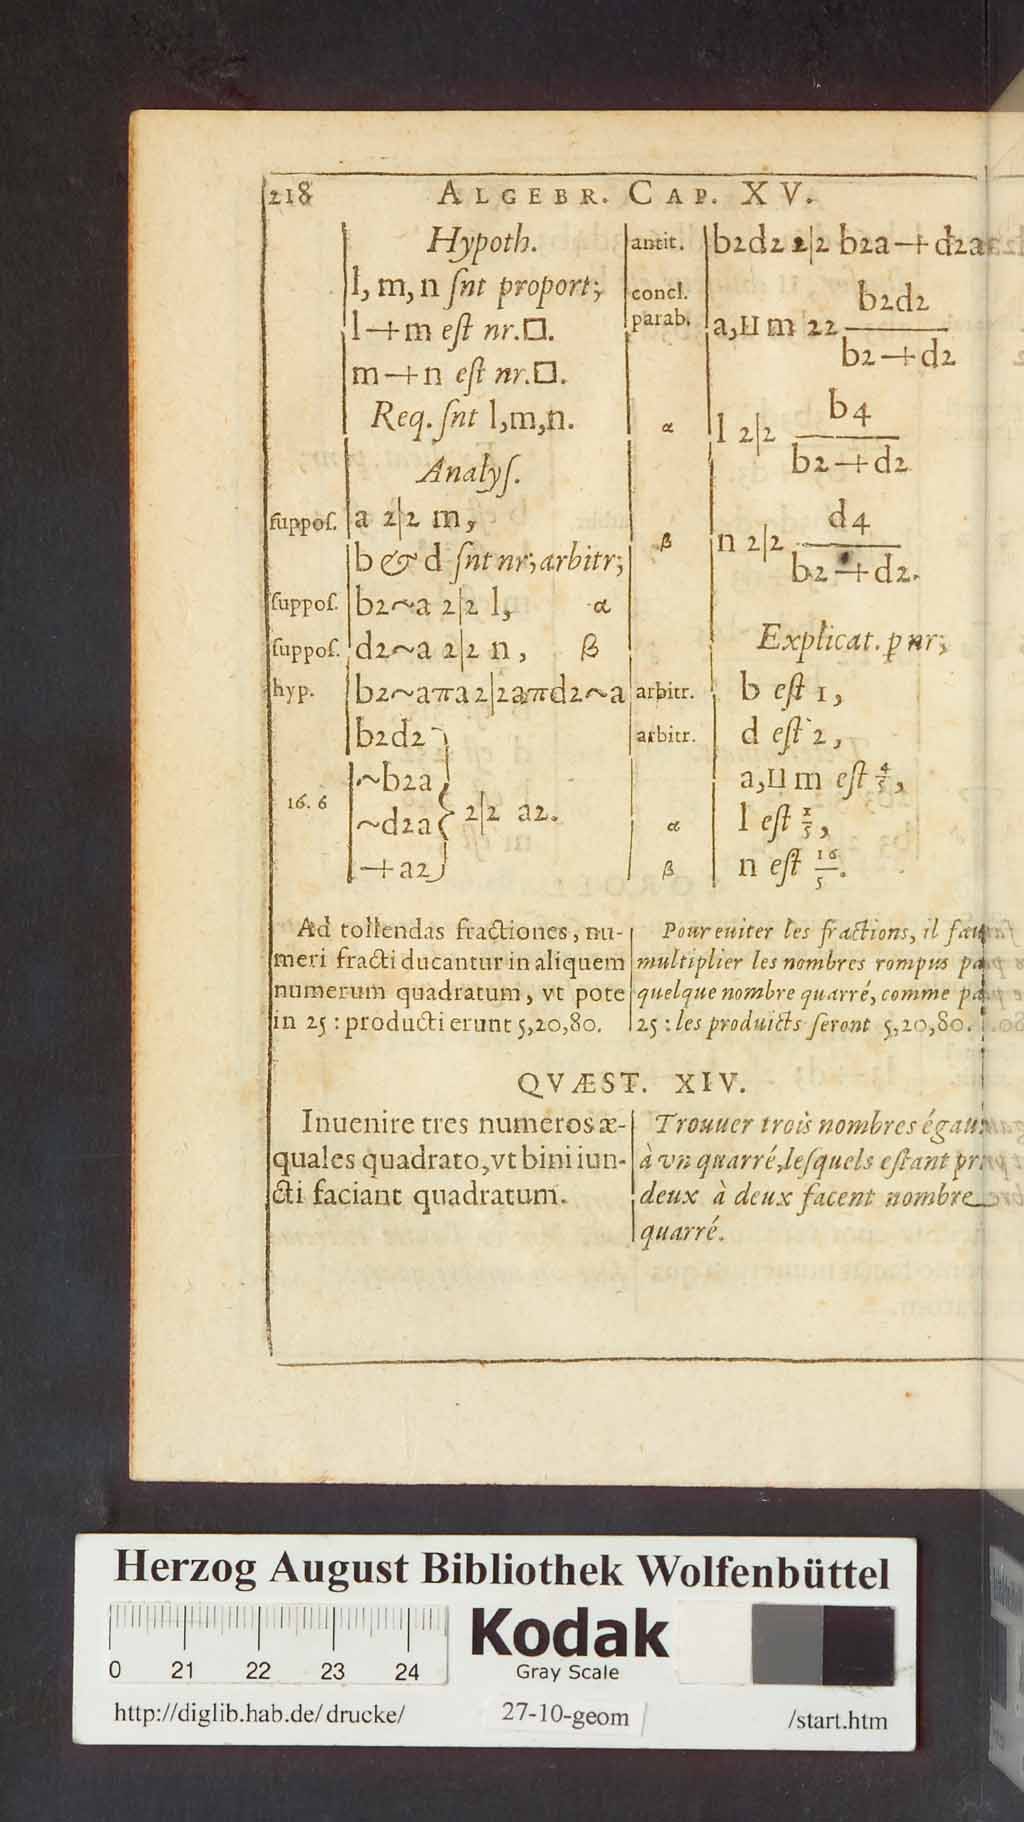 218 ALGEBR. CAP. XV.
Hypoth.
l, m, n ſnt proport;
l-+m eſt nr.□.
m-+n eſt nr.□.
Req. ſnt l,m,n.
Analyſ.
ſuppoſ. a 2|2 m,
b & d ſnt nr; arbitr;
ſuppoſ. b2~a 2|2 l, α
ſuppoſ. d2~a 2|2 n, β
hyp. b2~aπa2|2aπd2~a
b2d2
~b2a
16. 6 ~d2a } 2|2 a2.
-+a2
antit. b2d2 2|2 b2a-+d2a
concl.
parab. a,II m 22 b2d2 / b2-+d2
α l 2|2 b4 / b2-+d2
β n 2|2 d4 / b2-+d2.
Explicat. p nr;
arbitr. b eſt 1,
arbitr. d eſt 2,
a,II m eſt 4/5,
α l eſt 1/5,
β n eſt 16/5.
Ad tollendas fractiones, nu-
meri fracti ducantur in aliquem
numerum quadratum, vt pote
in 25 : producti erunt 5,20,80.
Pour euiter les fractions, il faut
multiplier les nombres rompus par
quelque nombre quarré, comme par
25 : les produicts ſeront 5,20,80.
QVÆST. XIV.
Inuenire tres numeros æ-
quales quadrato, vt bini iun-
cti faciant quadratum.
Trouuer trois nombres égaux
à vn quarré, leſquels eſtant
deux à deux facent nombre
quarré.
Herzog August Bibliothek Wolfenbüttel
Kodak
Gray Scale
0 21 22 23 24
http://diglib.hab.de/drucke/ 27-10-geom /start.htm